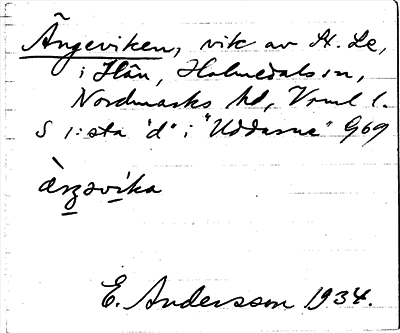 Ängeviken, vik av St. Le,
i Hån, Holmedals sn,
Nordmarks hd, Vrml l.
S 1:sta "d" i "Uddarna" G69
àrȝəvíka
E. Andersson 1934.